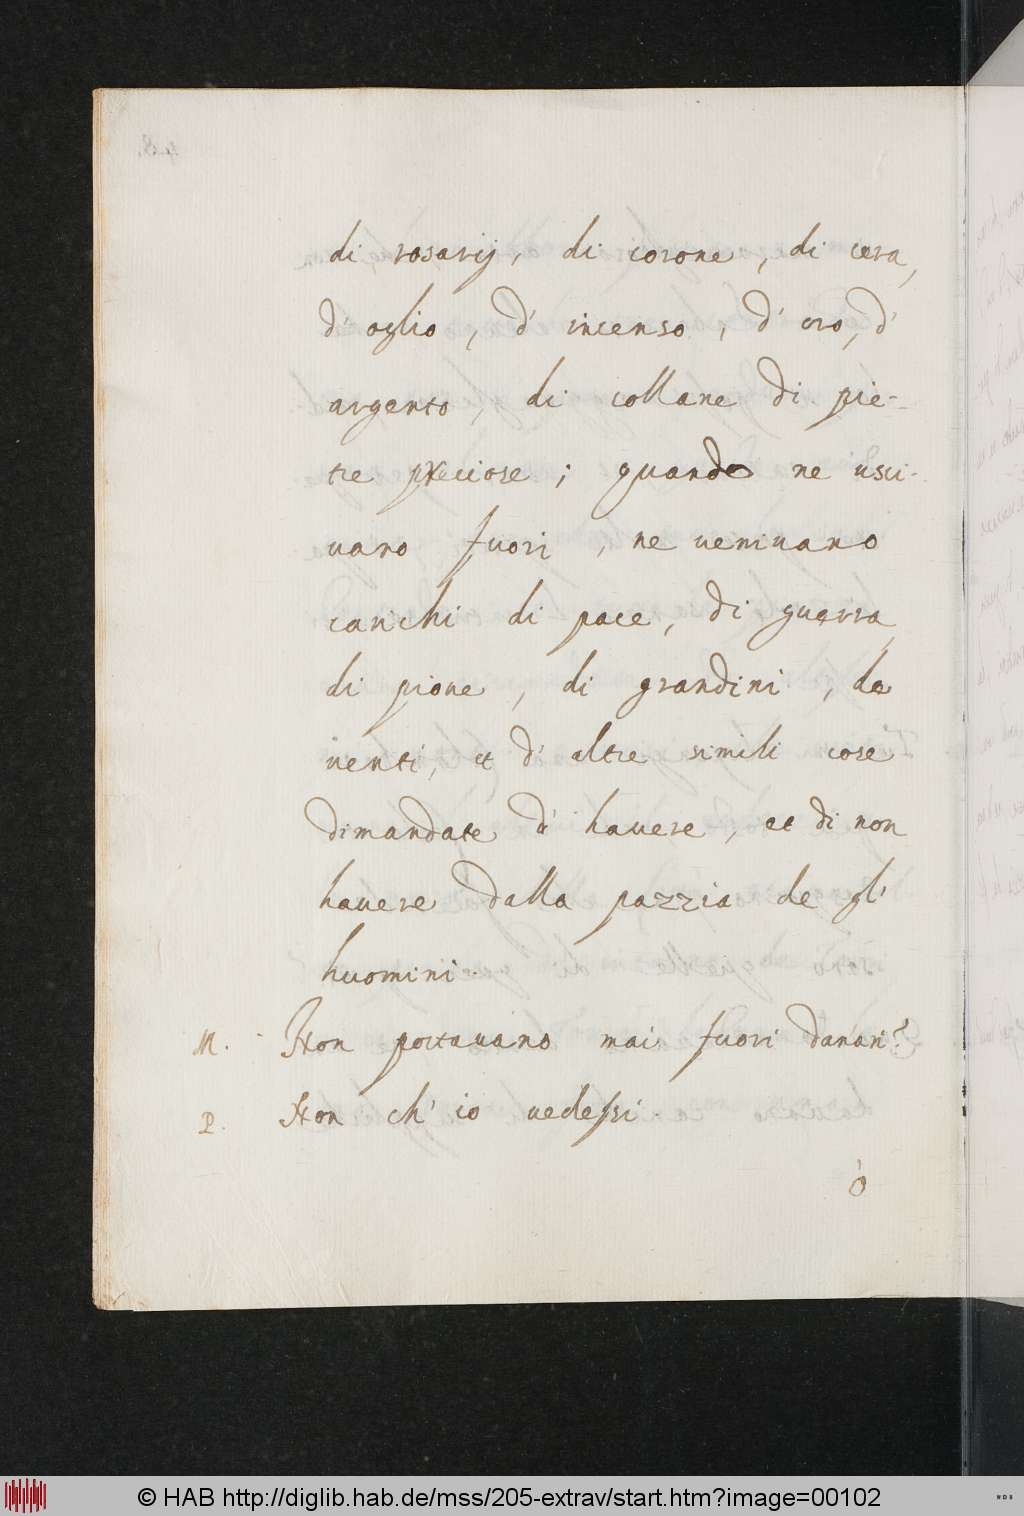 di rosarij, di corone, di cera,
d' oglio, d' incenso, d' oro, d'
argento, di collane di pie-
tre preciose; quando ne usci-
uano fuori, ne ueniuano
carichi di pace, di guerra,
di pioue, di grandini, de
uenti, et d' altre simili cose
dimandate d' hauere, et di non
hauere dalla pazzia de gl'
huomini.
M. Non portauano mai fuori danari?
P. Non ch' io uedessi
ò
© HAB http://diglib.hab.de/mss/205-extrav/start.htm?image=00102